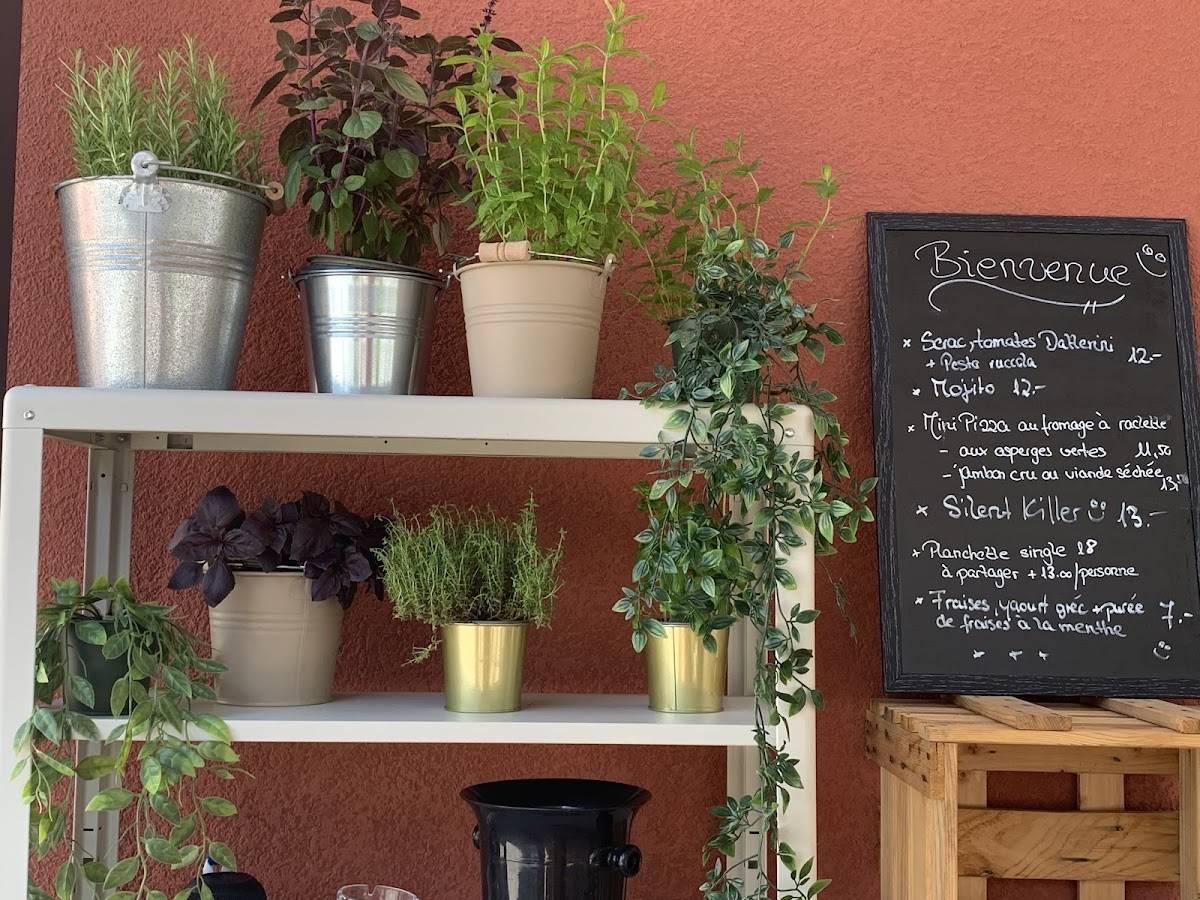 Bienvenue
× Serac, tomates Datterini 12.-
+ Pesto ruccola
× Mojito 12.-
× Mini Pizza au fromage à raclette
- aux asperges vertes 11,50
- jambon cru ou viande séchée 13,50
× Silent Killer 13.-
× Planchette single 18
à partager + 13.00/personne
× Fraises, yaourt gréc + purée 7.-
de fraises à la menthe